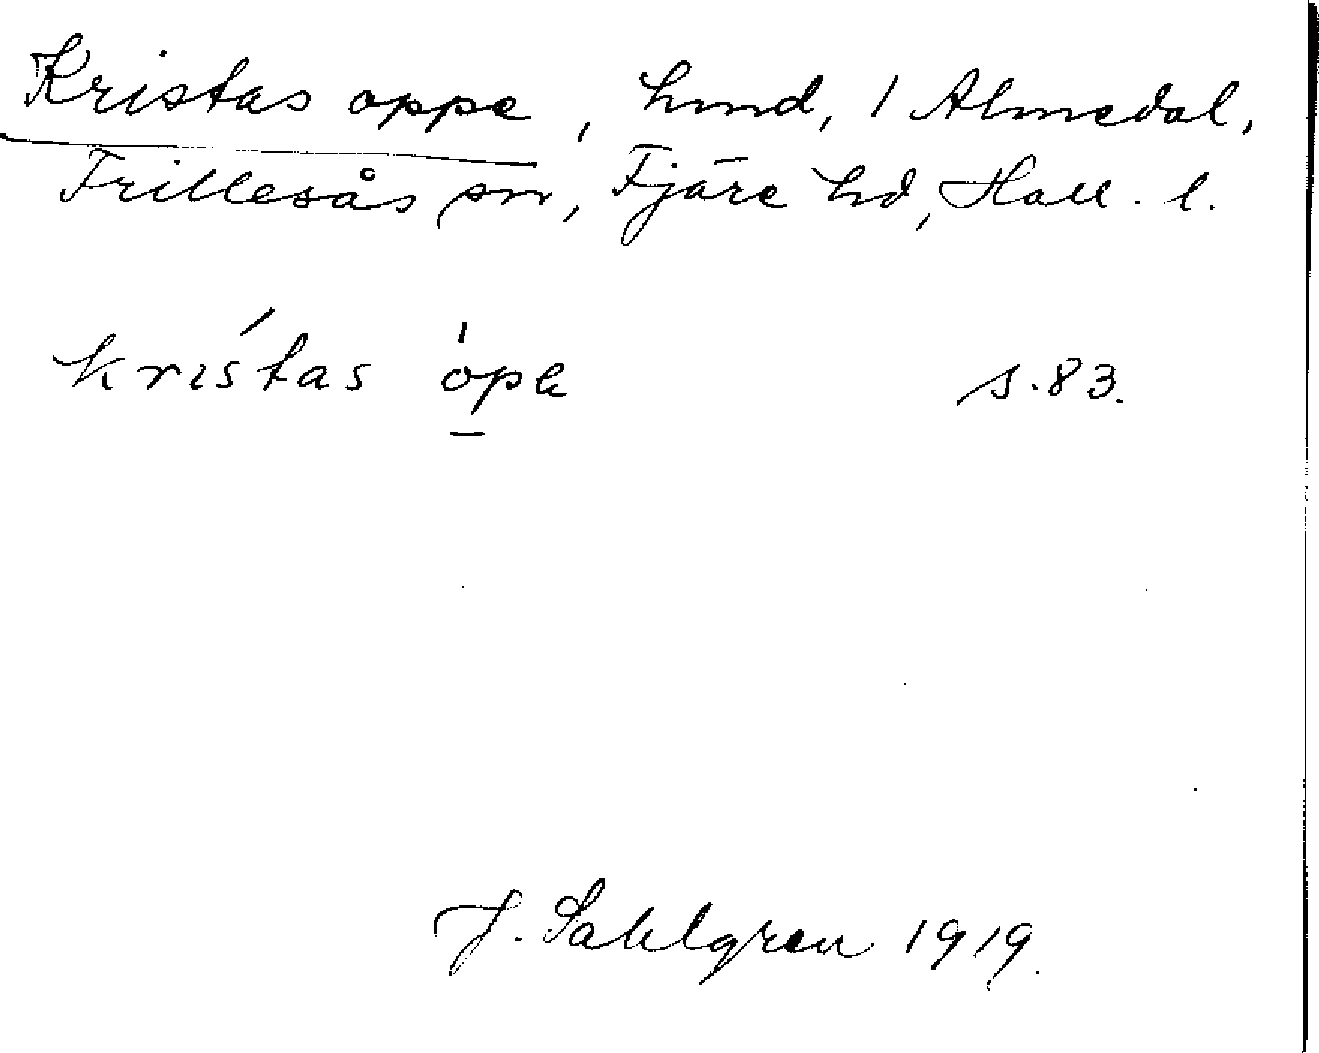 Kristas oppe, hmd, 1 Almedal,
Frillesås sn, Fjäre hd, Hall. l.
krístas ópe s. 83.
J. Sahlgren 1919.